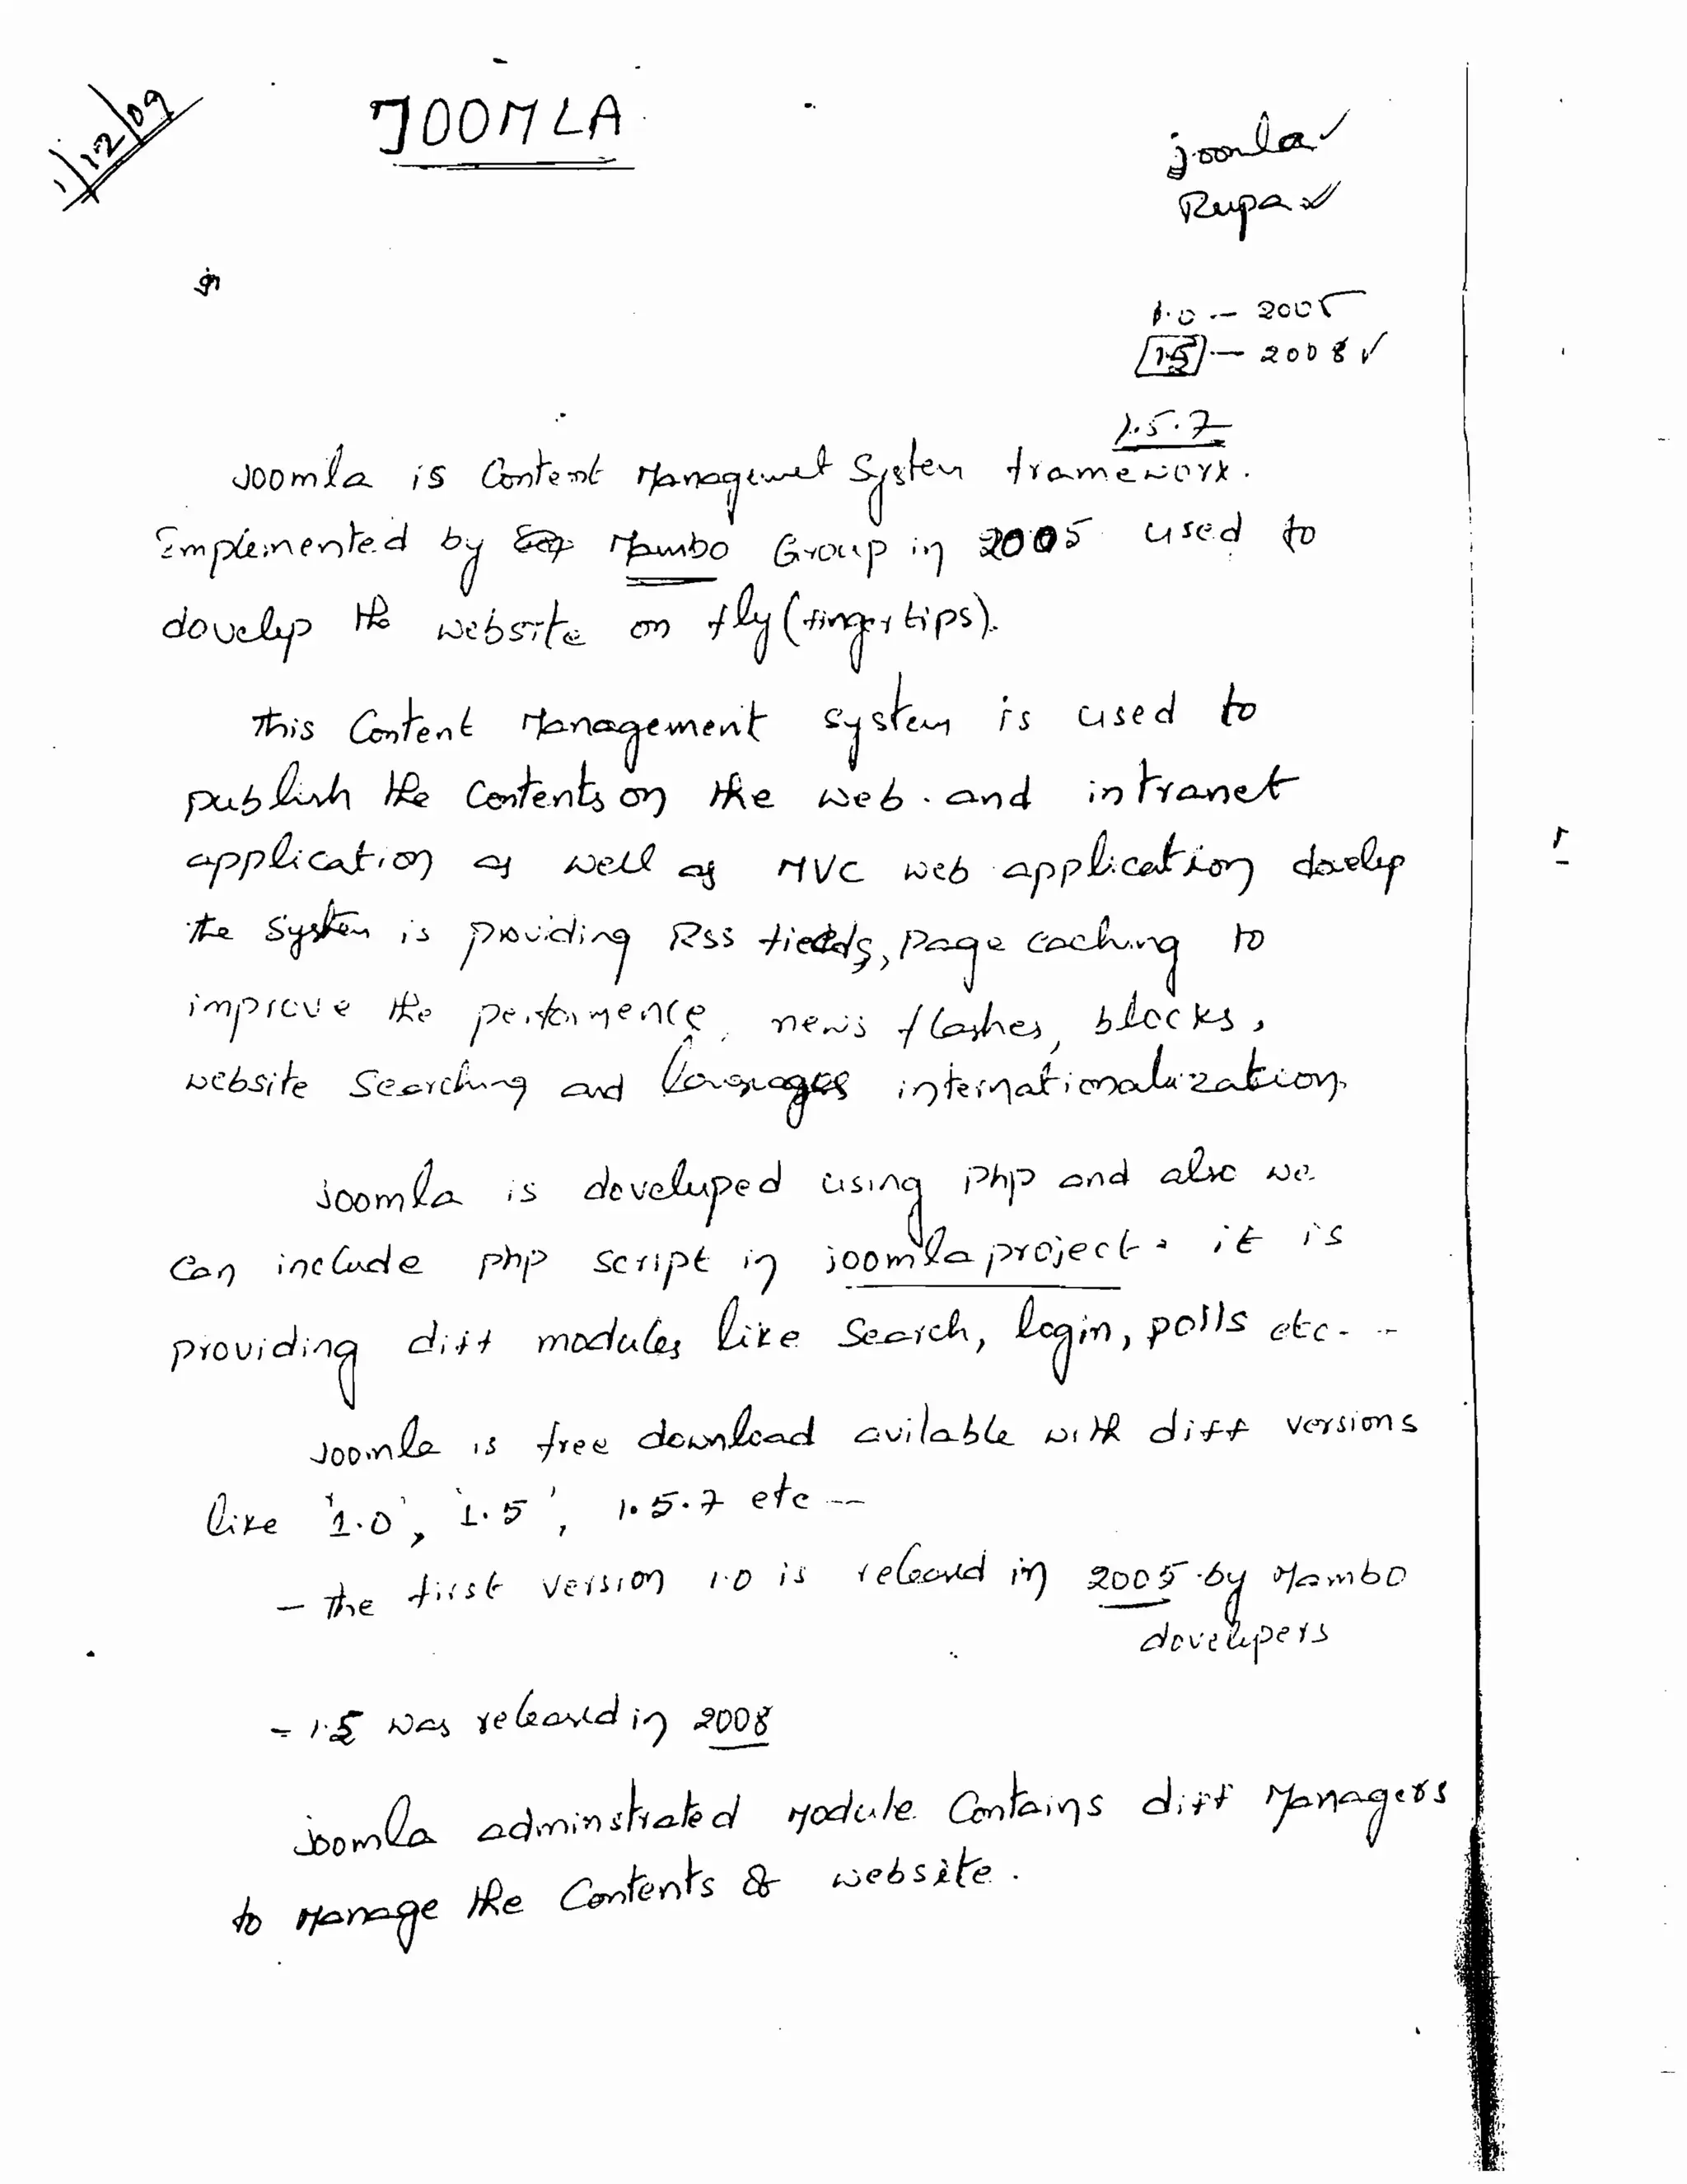 1/12/09
JOOMLA
joomla ✓
Rupa ✓
1.0 - 2005
1.5 - 2008 ✓
1.5.7
Joomla is Content Management System framework.
Implemented by Mambo Group in 2005 used to
develop the website on fly (fingertips).
This Content Management system is used to
publish the contents on the web. and intranet
application as well as MVC web application develep
the system is providing RSS fields, page caching to
improve the performence, news flashes, blocks,
website searching and languages internationalization.
joomla is developed using php and also we
can include php script in joomla project. it is
providing diff modules like search, login, polls etc--
Joomla is free download avilable with diff versions
like '1.0', '1.5', 1.5.7 etc--
- The first version 1.0 is released in 2005 by Mambo
developers
- 1.5 was released in 2008
joomla adminstrated Module Contains diff Managers
to Manage the Contents & website.